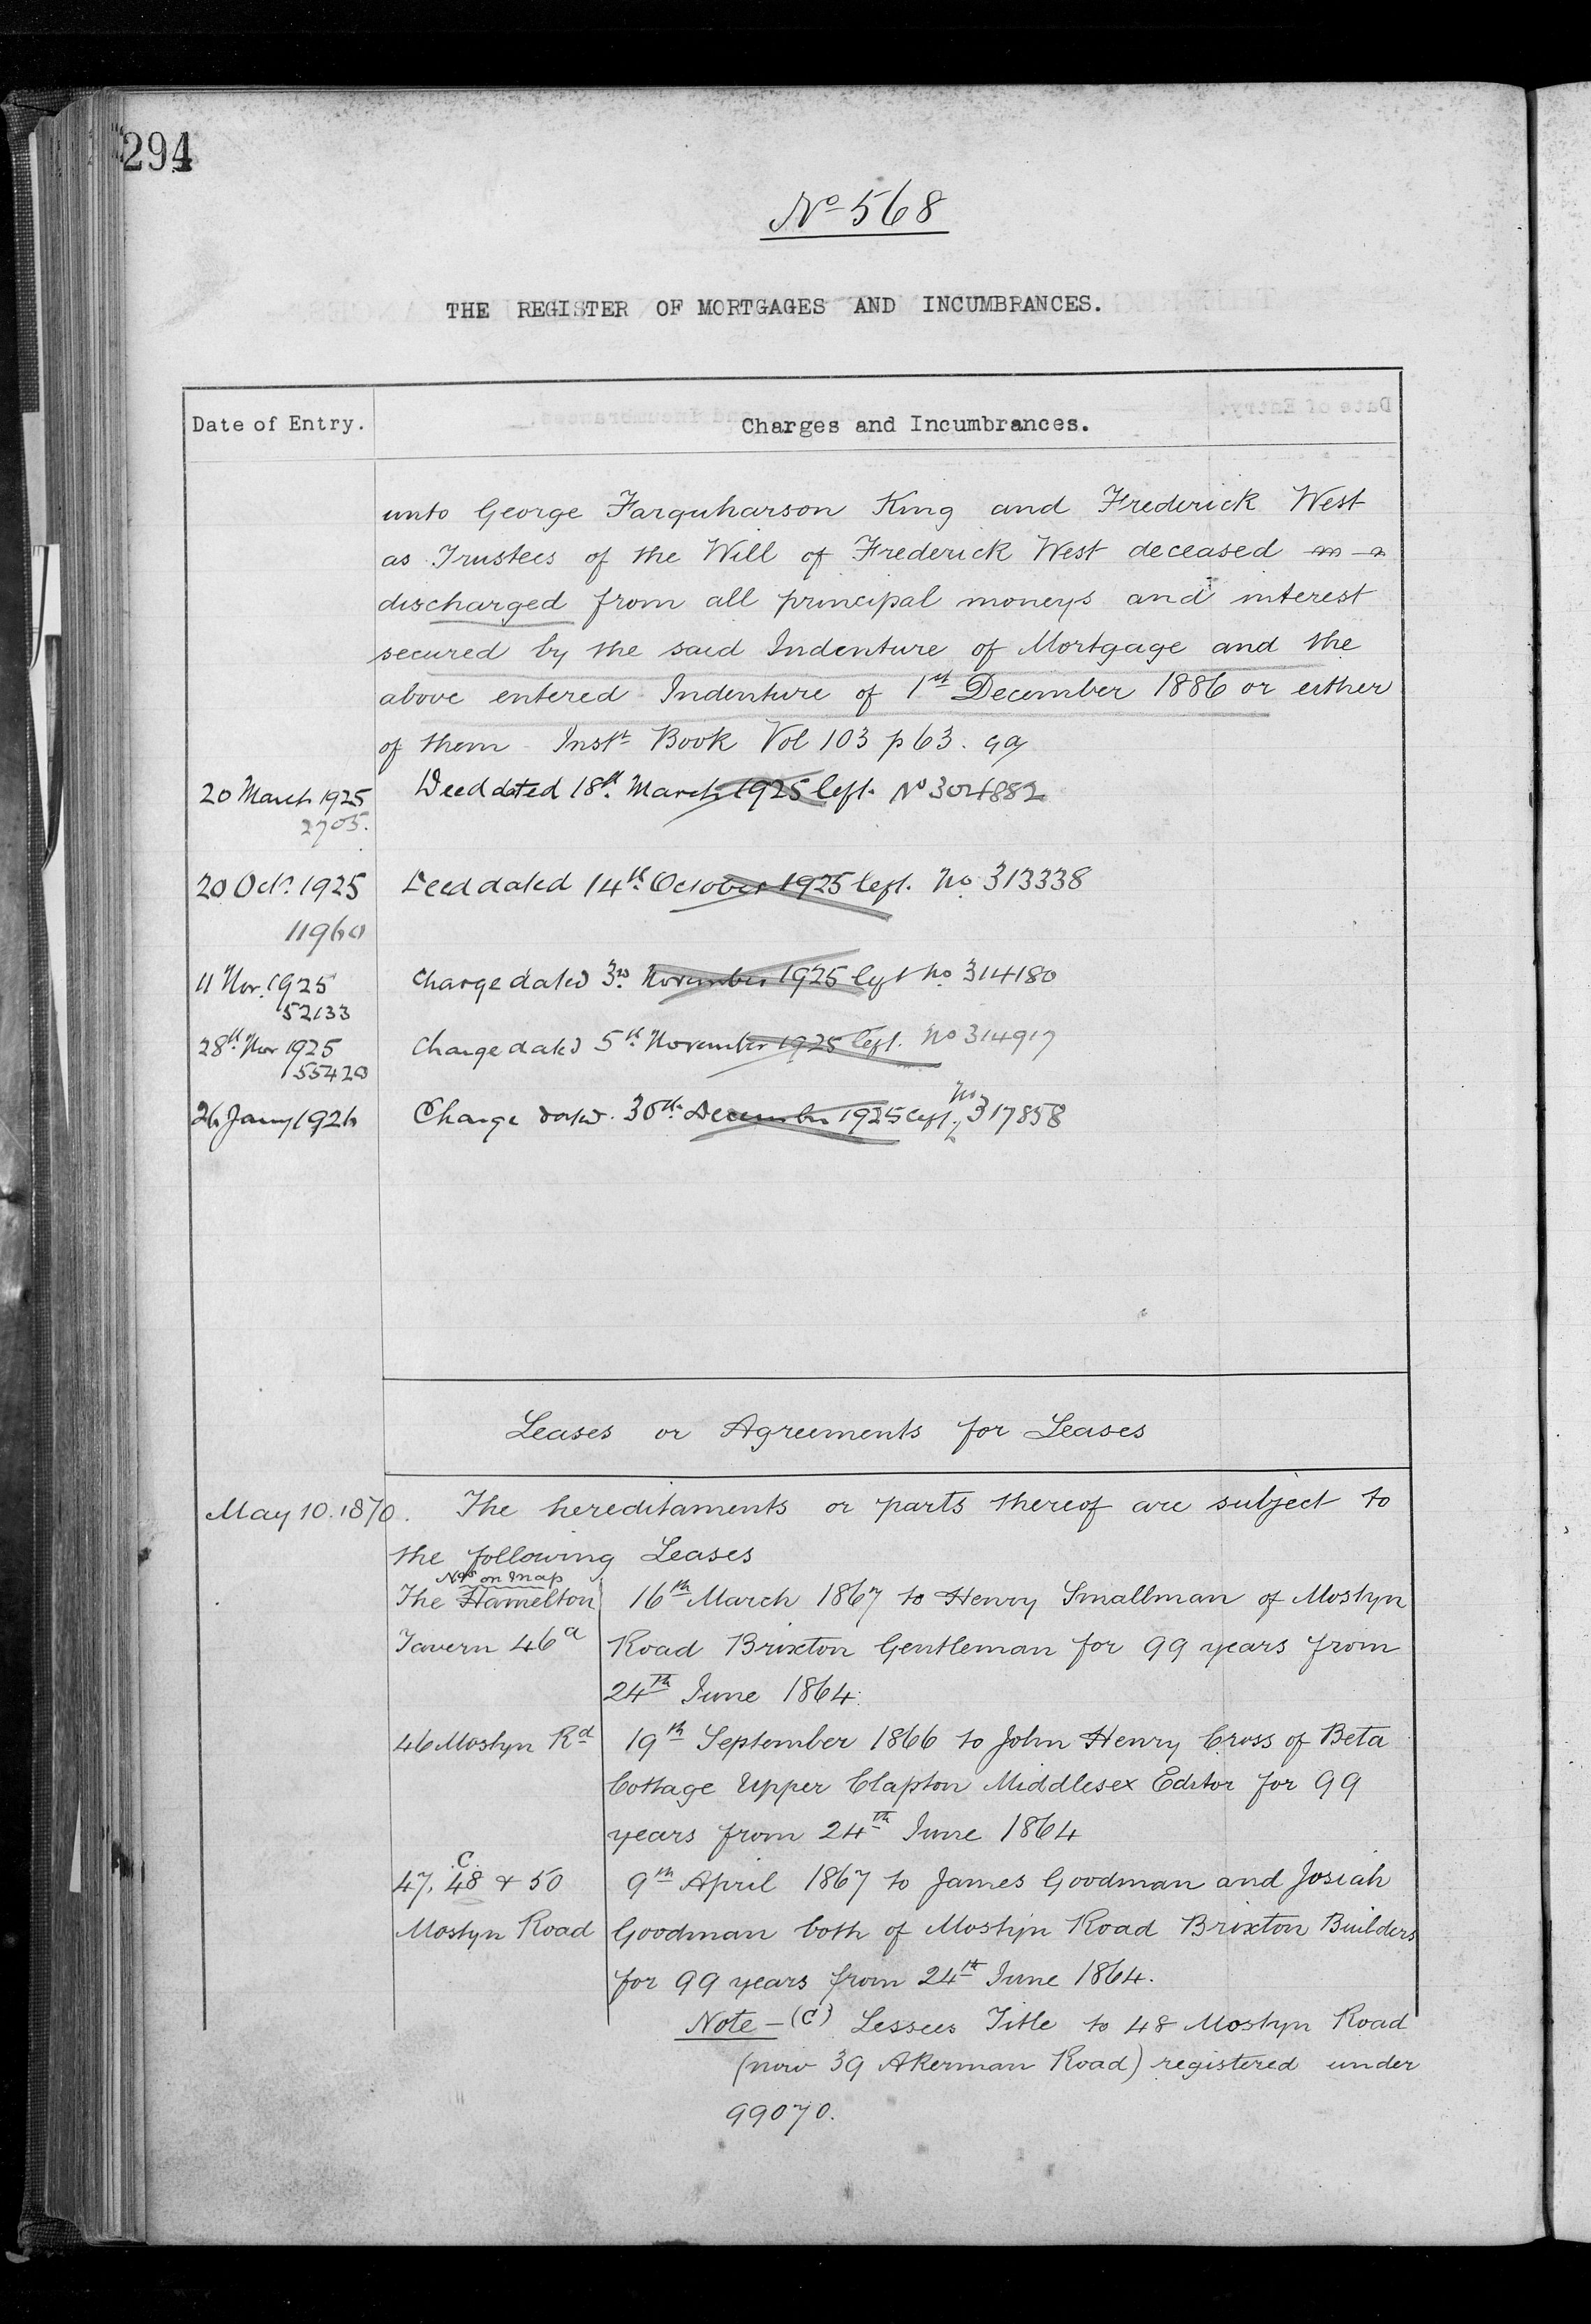 294
No 568
THE REGISTER OF MORTGAGES AND INCUMBRANCES.
Date of Entry. Charges and Incumbrances.
unto George Farquharson King and Frederick West
as Trustees of the Will of Frederick West deceased
discharged from all principal moneys and interest
secured by the said Indenture of Mortgage and the
above entered Indenture of 1st December 1886 or either
of them Instt Book Vol 103 p 63.
20 March 1925 Deed dated 18th March 1925 left. No 304882
2705.
20 Oct. 1925 Deed dated 14th October 1925 left. No 313338
11960
11 Nov. 1925 Charge dated 3rd November 1925 left No 314180
52133
28th Nov 1925 Charge dated 5th November 1925 left. No 314917
55420
26 Jany 1926 Charge dated 30th December 1925 left. No 317858
Leases or Agreements for Leases
May 10. 1870. The hereditaments or parts thereof are subject to
the following Leases
Nos on Map
The Hamelton 16th March 1867 to Henry Smallman of Mostyn
Tavern 46a Road Brixton Gentleman for 99 years from
24th June 1864.
46 Mostyn Rd 19th September 1866 to John Henry Cross of Beta
Cottage Upper Clapton Middlesex Editor for 99
years from 24th June 1864
C
47, 48 & 50 9th April 1867 to James Goodman and Josiah
Mostyn Road Goodman both of Mostyn Road Brixton Builders
for 99 years from 24th June 1864.
Note - (C) Lessees Title to 48 Mostyn Road
(now 39 Akerman Road) registered under
99070.